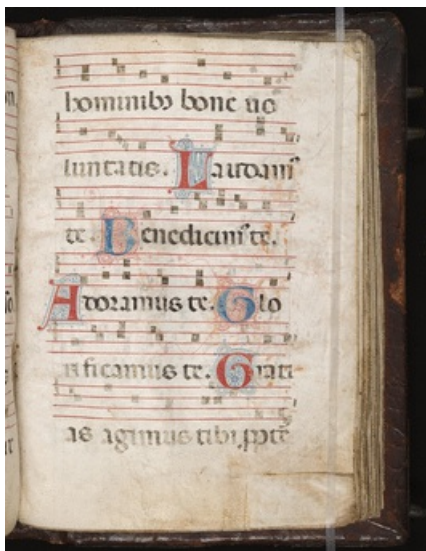 hominibꝫ bone uo
luntatis. Laudam᷒
te. Benedicim᷒ te.
Adoramus te. Glo
rificamus te. Grati
as agimus tibi. ꝓpte